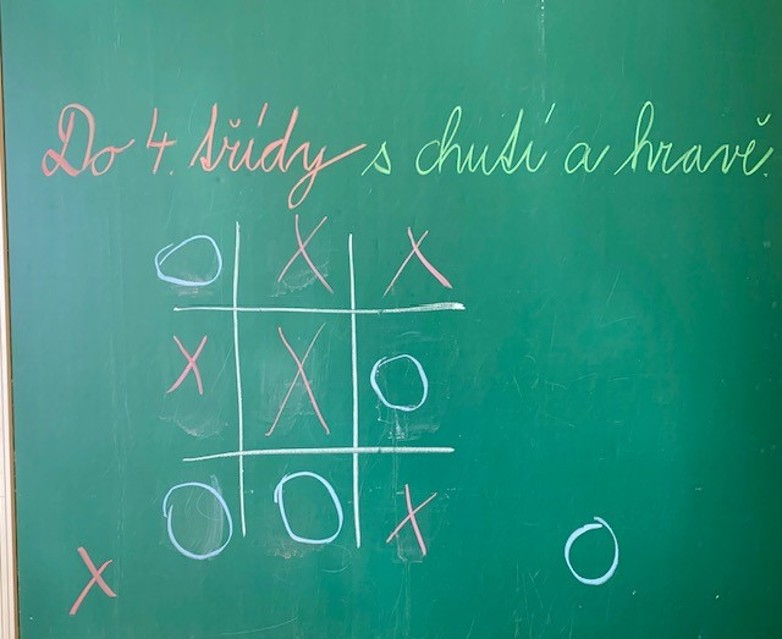 Do 4. třídy s chutí a hravě.
O X X
X X O
O O X
X O